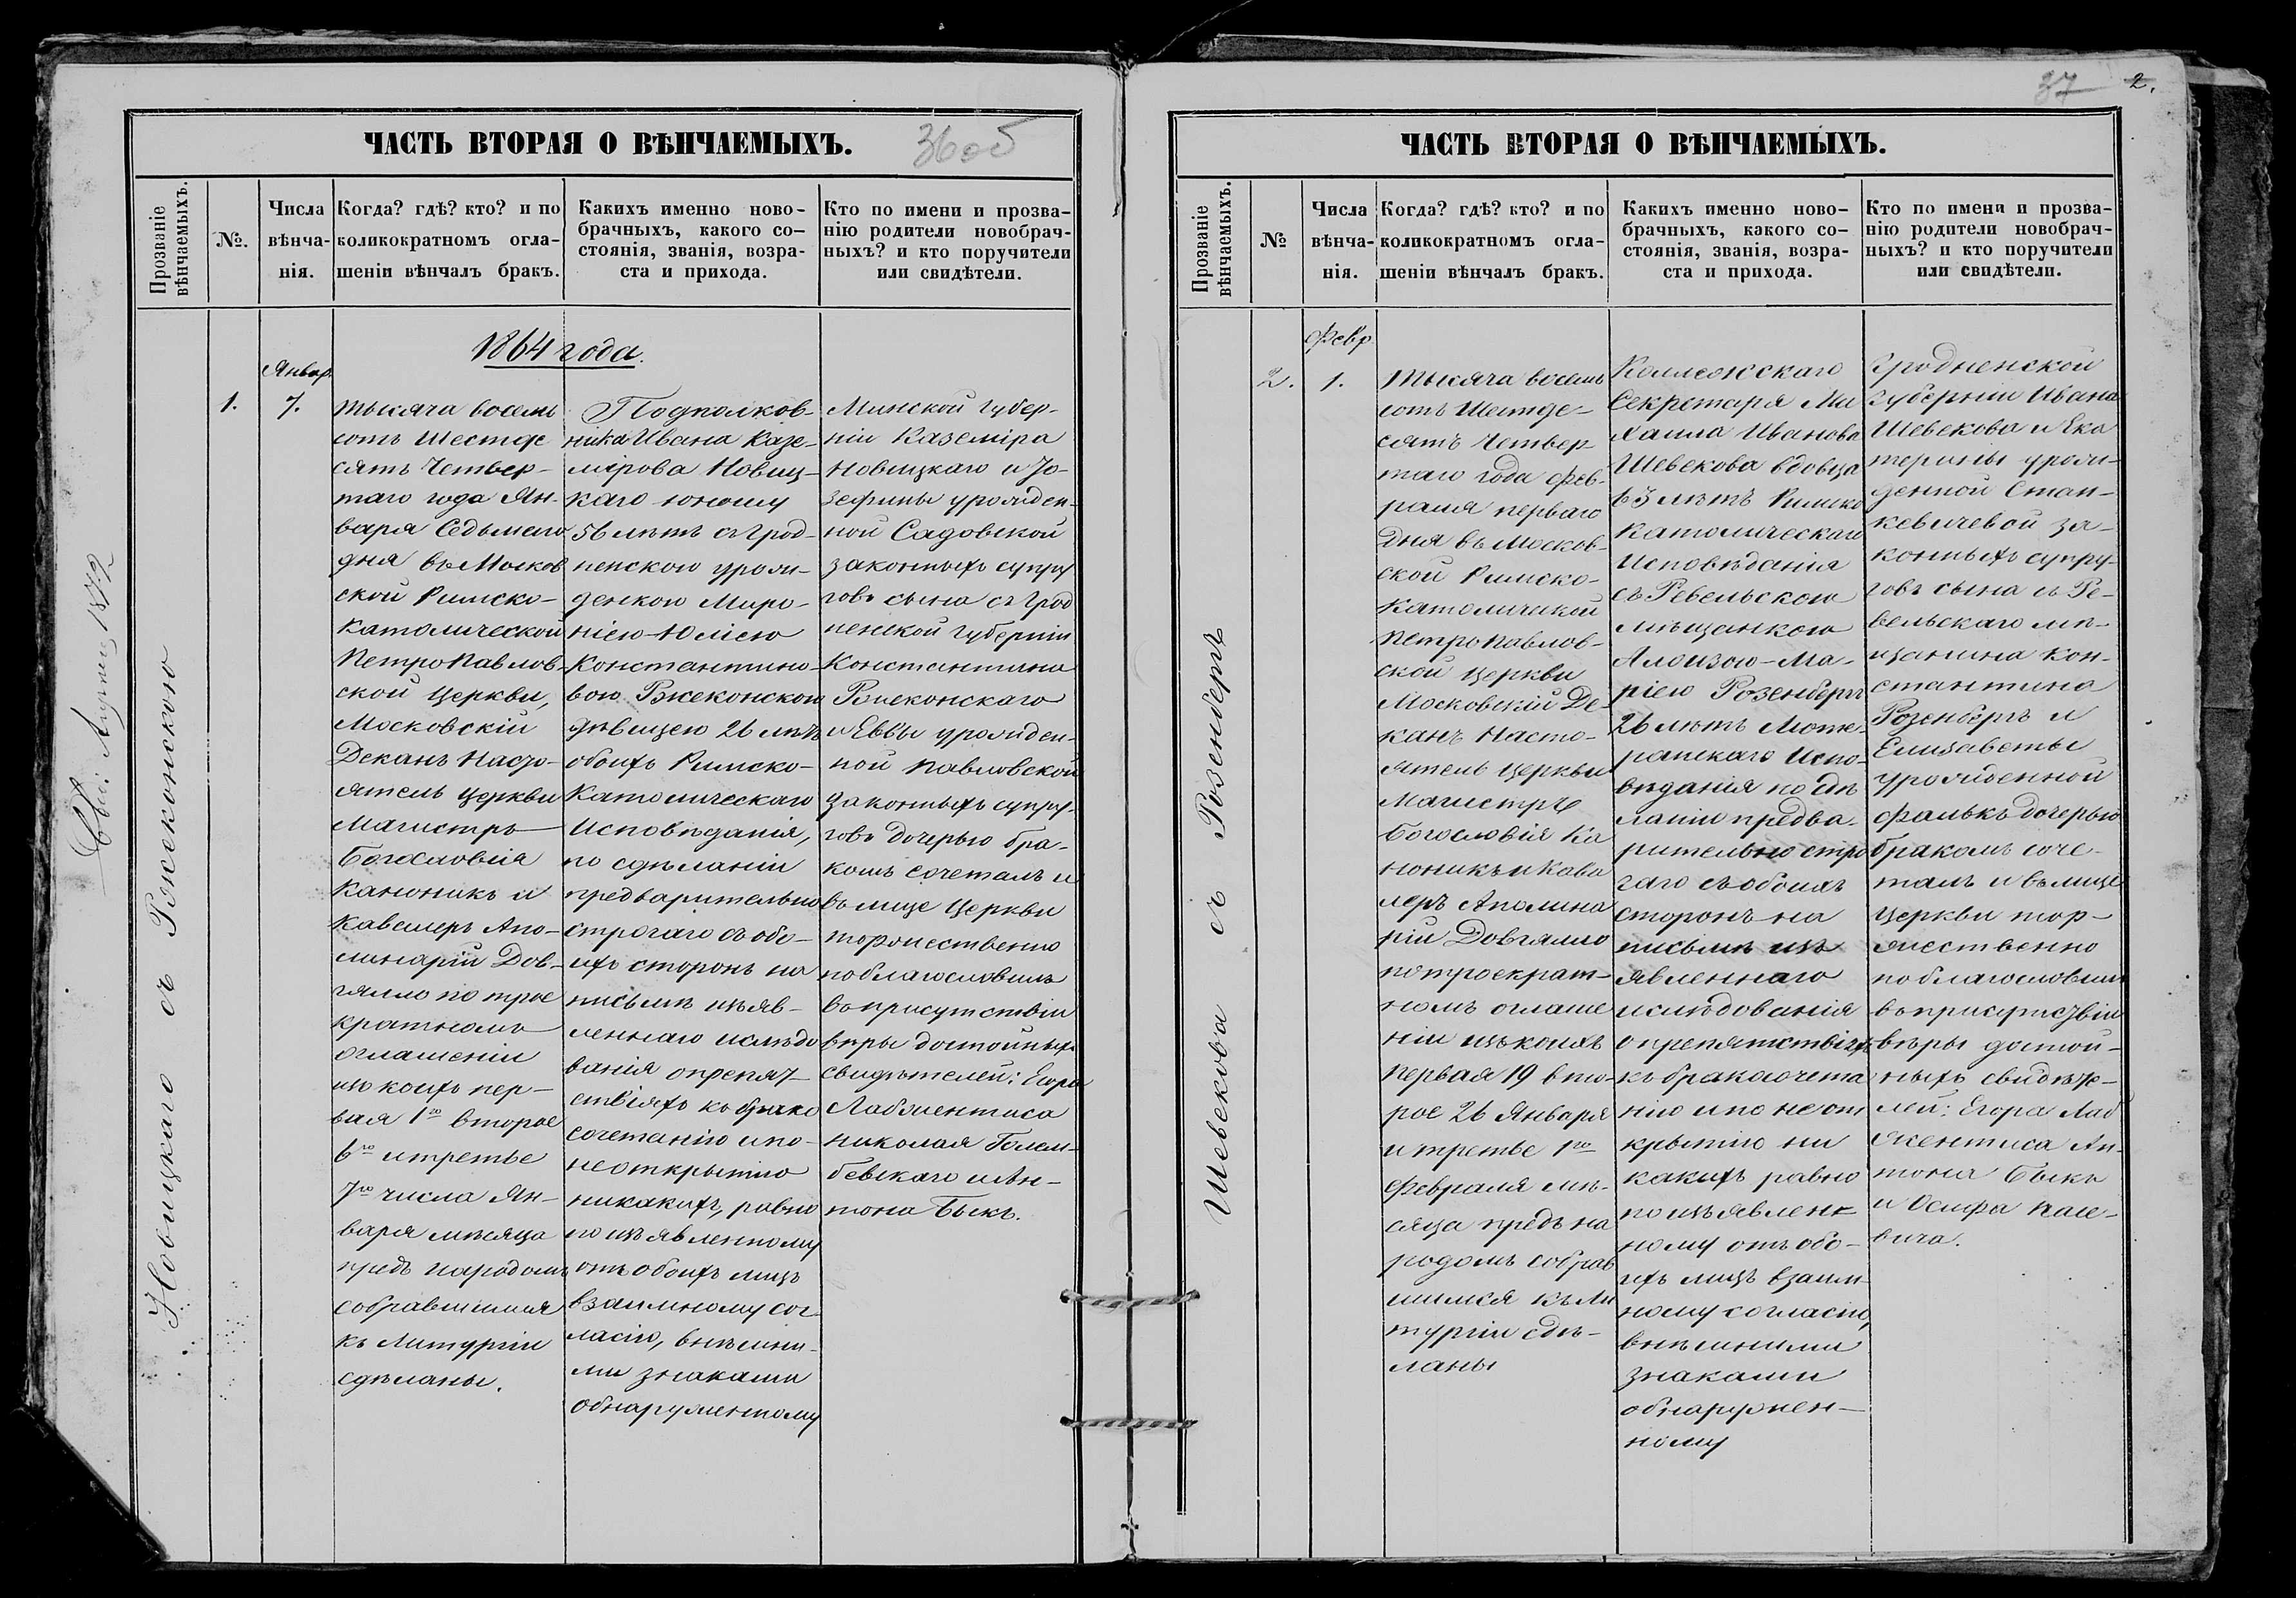 36об
ЧАСТЬ ВТОРАЯ О ВѢНЧАЕМЫХЪ.
Прозваніе
вѣнчаемыхъ.
№.
Числа
вѣнча-
нія.
Когда? гдѣ? кто? и по
коликократномъ огла-
шеніи вѣнчалъ бракъ.
Какихъ именно ново-
брачныхъ, какого со-
стоянія, званія, возра-
ста и прихода.
Кто по имени и прозва-
нію родители новобрач-
ныхъ? и кто поручители
или свидѣтели.
1872
Новицкаго съ Ржеконскою
1864 года.
1.
Январ.
7.
тысяча восемь
сотъ Шестде
сятъ Четвер-
таго года Ян-
варя Седьмаго
дня въ Москов
ской Римско-
Католической
ПетроПавлов-
ской Церкви,
Московскій
Деканъ Насто-
ятель Церкви
Магистръ
Богословія
Каноникъ и
Кавалеръ Апо-
линарій Дов-
гялло по трое
кратномъ
оглашеніи
изъ коихъ пер-
вая 1го второе
6го и третье
7го числа Ян-
варя мѣсяца
предъ народомъ
собравшимся
къ Литургіи
сдѣланы.
Подполков-
ника Ивана Казе-
мірова Новиц-
каго юношу
56 лѣтъ съ Грод-
ненскою урож-
денкою Миро-
ніею-Юліею
Константино-
вою Ржеконскою
дѣвицею 26 лѣтъ
обоихъ Римско-
Католическаго
Исповѣданія,
по сдѣланіи
предварительно
строгаго съ обо-
ихъ сторонъ на
письмѣ изъяв-
леннаго изслѣдо
ванія о препят-
ствіяхъ къ брако
сочетанію и по-
неоткрытію
никакихъ, равно
по изъявленному
отъ обоихъ лицъ
взаимному сог-
ласію, внѣшни-
ми знаками
обнаруженному
Минской Губер-
ніи Каземіра
Новицкаго и Іо-
зефины урожден-
ной Садовской
законныхъ супру
говъ сына съ Грод
ненской Губерніи
Константина
Ржеконскаго
и Еввы урожден-
ной Павловской
законныхъ супру-
говъ дочерью бра-
комъ сочеталъ и
въ лице Церкви
торжественно
поблагословилъ
въ присутствіи
вѣры достойныхъ
свидѣтелей: Егора
Лабжентиса
Николая Голем-
бевскаго и Ан-
тона Быкъ.
37 2.
ЧАСТЬ ВТОРАЯ О ВѢНЧАЕМЫХЪ.
Прозваніе
вѣнчаемыхъ.
№
Числа
вѣнча-
нія.
Когда? гдѣ? кто? и по
коликократномъ огла-
шеніи вѣнчалъ бракъ.
Какихъ именно ново-
брачныхъ, какого со-
стоянія, званія, возра-
ста и прихода.
Кто по имени и прозва-
нію родители новобрач-
ныхъ? и кто поручители
или свидѣтели.
Шевекова съ Розенбергъ
2.
Февр.
1.
Тысяча восемь
сотъ Шестде-
сятъ Четвер
таго года Фев-
раля перваго
дня въ Москов-
ской Римско-
Католической
ПетроПавлов-
ской Церкви
Московскій Де-
канъ Насто-
ятель Церкви
Магистръ
Богословія Ка
ноникъ и Кава
леръ Аполина
рій Довгялло
по троекрат-
номъ оглаше
ніи изъ коихъ
первая 19 вто-
рое 26 Января
и третье 1го
Февраля мѣ-
сяца предъ на
родомъ собрав
шимся къ Ли
тургіи сдѣ-
ланы
Коллежскаго
Секретаря Ми
хаила Иванова
Шевекова вдовца
63 лѣтъ Римско
Католическаго
Исповѣданія
съ Ревельскою
мѣщанкою
Алоизою-Ма-
ріею Розенбергъ
26 лѣтъ Люте-
ранскаго Испо-
вѣданія по сдѣ
ланіи предва-
рительно стро
гаго съ обоихъ
сторонъ на
письмѣ изъ
явленнаго
изслѣдованія
о препятствіяхъ
къ бракосочета
нію и по неот
крытію ни
какихъ равно
по изъявлен
ному отъ обо-
ихъ лицъ взаим
ному согласію,
внѣшними
знаками
обнаружен-
ному
Гродненской
Губерніи Ивана
Шевекова и Ека
терины урож-
денной Стан-
кевичевой за-
конныхъ супру-
говъ сына съ Ре-
вельскаго мѣ-
щанина Кон-
стантина
Розенбергъ и
Елисаветы
урожденной
Фалькъ дочерью
бракомъ соче-
талъ и въ лице
Церкви тор-
жественно
поблагословилъ
въ присутствіи
вѣры достой-
ныхъ свидѣте-
лей: Егора Лаб
жентиса Ан-
тона Быкъ
и Осифа